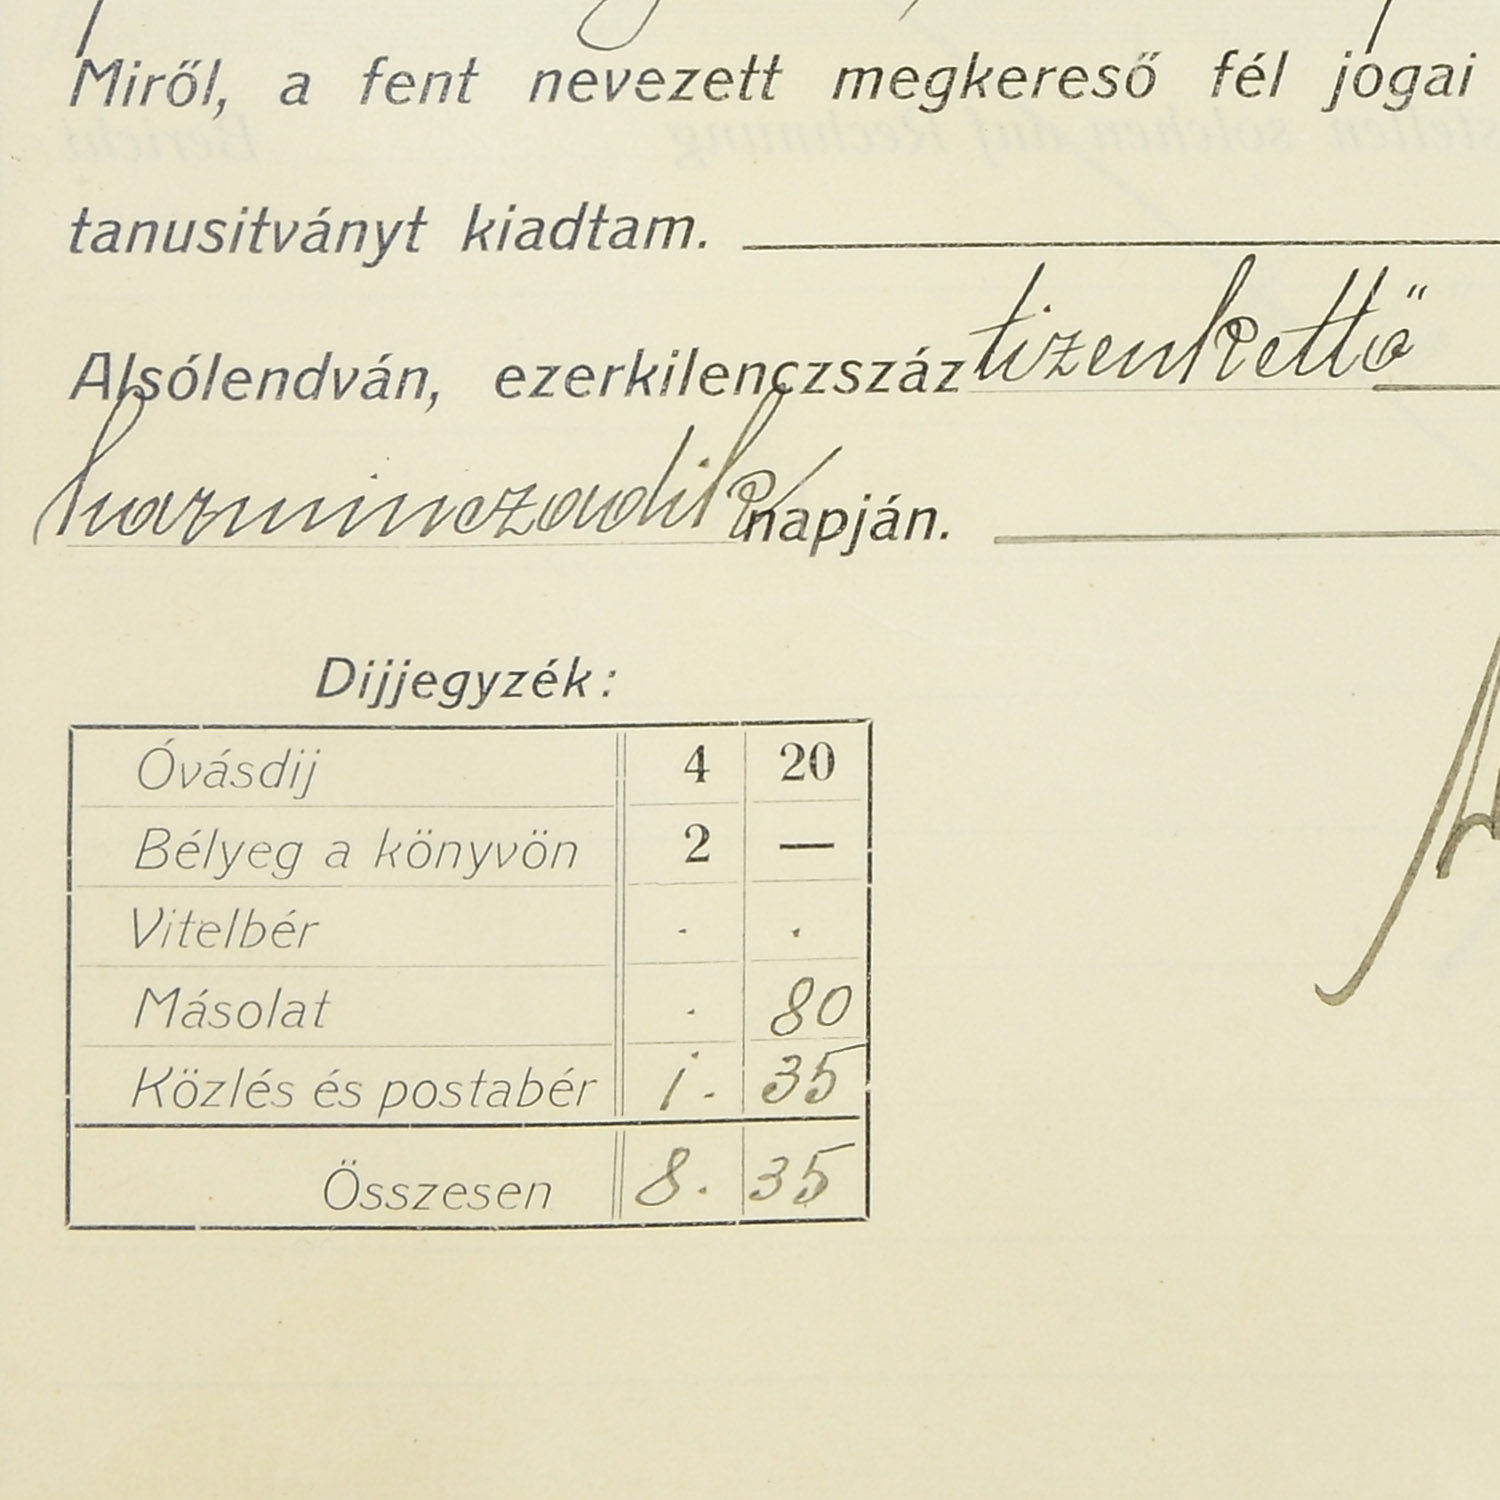 Miről, a fent nevezett megkereső fél jogai
tanusitványt kiadtam.
Alsólendván, ezerkilenczszáz tizenkettő
harminczadik napján.
Dijjegyzék:
Óvásdij 4 20
Bélyeg a könyvön 2 —
Vitelbér . .
Másolat . 80
Közlés és postabér 1. 35
Összesen 8. 35